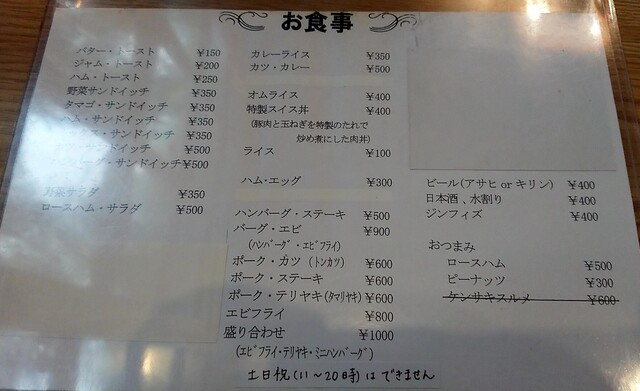 お食事
バター・トースト ¥150
ジャム・トースト ¥200
ハム・トースト ¥250
野菜サンドイッチ ¥350
タマゴ・サンドイッチ ¥350
ハム・サンドイッチ ¥350
ス・サンドイッチ ¥350
ンドイッチ ¥500
ーグ・サンドイッチ ¥500
野菜サラダ ¥350
ロースハム・サラダ ¥500
カレーライス ¥350
カツ・カレー ¥500
オムライス ¥400
特製スイス丼 ¥400
(豚肉と玉ねぎを特製のたれで
炒め煮にした肉丼)
ライス ¥100
ハム・エッグ ¥300
ハンバーグ・ステーキ ¥500
バーグ・エビ ¥900
(ハンバーグ・エビフライ)
ポーク・カツ (トンカツ) ¥600
ポーク・ステーキ ¥600
ポーク・テリヤキ(タマリヤキ) ¥600
エビフライ ¥800
盛り合わせ ¥1000
(エビフライ・テリヤキ・ミニハンバーグ)
土日祝(11〜20時)はできません
ビール(アサヒ or キリン) ¥400
日本酒、水割り ¥400
ジンフィズ ¥400
おつまみ
ロースハム ¥500
ピーナッツ ¥300
ケンサキスルメ ¥600